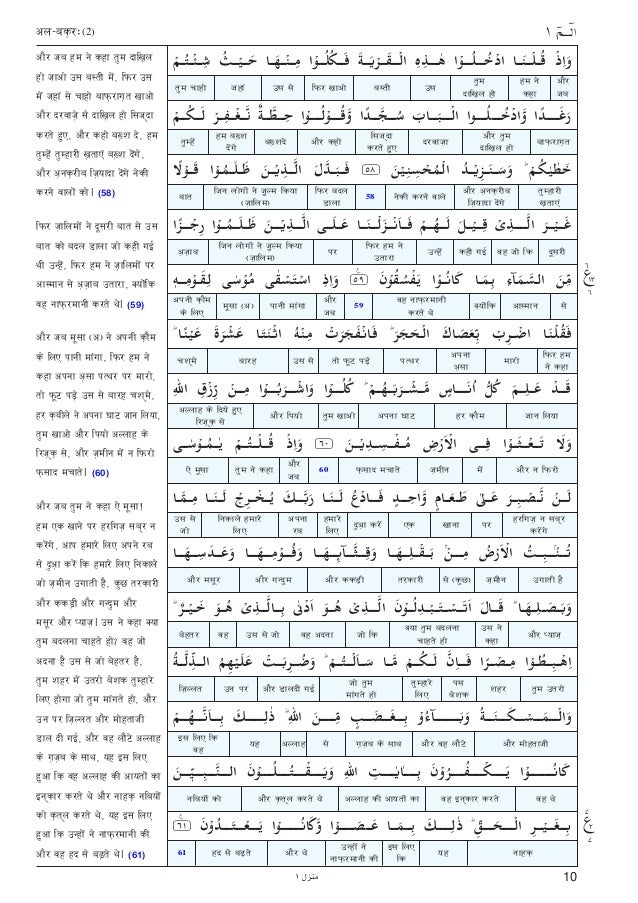 अल-बक़रः (2)
الٓـمّٓ ١
और जब हम ने कहा तुम दाख़िल
हो जाओ उस बस्ती में, फिर उस
में जहां से चाहो बाफ़राग़त खाओ
और दरवाज़े से दाख़िल हो सिज्दा
करते हुए, और कहो बख़्श दे, हम
तुम्हें तुम्हारी ख़ताएं बख़्श देंगे,
और अ़नक़रीब ज़ियादा देंगे नेकी
करने वालों को। (58)
फिर ज़ालिमों ने दूसरी बात से उस
बात को बदल डाला जो कही गई
थी उन्हें, फिर हम ने ज़ालिमों पर
आस्मान से अ़ज़ाब उतारा, क्योंकि
वह नाफ़रमानी करते थे। (59)
और जब मूसा (अ) ने अपनी क़ौम
के लिए पानी मांगा, फिर हम ने
कहा अपना अ़सा पत्थर पर मारो,
तो फूट पड़े उस से बारह चश्मे,
हर क़बीले ने अपना घाट जान लिया,
तुम खाओ और पियो अल्लाह के
रिज़्क़ से, और ज़मीन में न फिरो
फ़साद मचाते। (60)
और जब तुम ने कहा ऐ मूसा!
हम एक खाने पर हरगिज़ सब्र न
करेंगे, आप हमारे लिए अपने रब
से दुआ़ करें कि हमारे लिए निकाले
जो ज़मीन उगाती है, कुछ तरकारी
और ककड़ी और गन्दुम और
मसूर और प्याज़। उस ने कहा क्या
तुम बदलना चाहते हो? वह जो
अदना है उस से जो बेहतर है,
तुम शहर में उतरो बेशक तुम्हारे
लिए होगा जो तुम मांगते हो, और
उन पर ज़िल्लत और मोहताजी
डाल दी गई, और वह लौटे अल्लाह
के ग़ज़ब के साथ, यह इस लिए
हुआ कि वह अल्लाह की आयतों का
इन्कार करते थे और नाहक़ नबियों
को क़त्ल करते थे, यह इस लिए
हुआ कि उन्हों ने नाफ़रमानी की
और वह हद से बढ़ते थे। (61)
وَاِذْ قُلْنَا ادْخُلُوْا هٰذِهِ الْقَرْيَةَ فَكُلُوْا مِنْهَا حَيْثُ شِئْتُمْ
और जब हम ने कहा तुम दाख़िल हो उस बस्ती फिर खाओ उस से जहां तुम चाहो
رَغَدًا وَّادْخُلُوا الْبَابَ سُجَّدًا وَّقُوْلُوْا حِطَّةٌ نَّغْفِرْ لَكُمْ
बाफ़राग़त और तुम दाख़िल हो दरवाज़ा सिज्दा करते हुए और कहो बख़्शदे हम बख़्श देंगे तुम्हें
خَطٰيٰكُمْ ۭ وَسَنَزِيْدُ الْمُحْسِنِيْنَ ٥٨ فَبَدَّلَ الَّذِيْنَ ظَلَمُوْا قَوْلًا
तुम्हारी ख़ताएं और अ़नक़रीब ज़ियादा देंगे नेकी करने वाले 58 फिर बदल डाला जिन लोगों ने ज़ुल्म किया (ज़ालिम) बात
غَيْرَ الَّذِيْ قِيْلَ لَهُمْ فَاَنْزَلْنَا عَلَى الَّذِيْنَ ظَلَمُوْا رِجْزًا
दूसरी वह जो कि कही गई उन्हें फिर हम ने उतारा पर जिन लोगों ने ज़ुल्म किया (ज़ालिम) अ़ज़ाब
مِّنَ السَّمَآءِ بِمَا كَانُوْا يَفْسُقُوْنَ ٥٩ وَاِذِ اسْتَسْقٰى مُوْسٰى لِقَوْمِهٖ
से आस्मान क्योंकि वह नाफ़रमानी करते थे 59 और जब पानी मांगा मूसा (अ) अपनी क़ौम के लिए
فَقُلْنَا اضْرِبْ بِّعَصَاكَ الْحَجَرَ ۭ فَانْفَجَرَتْ مِنْهُ اثْنَتَا عَشْرَةَ عَيْنًا ۭ
फिर हम ने कहा मारो अपना अ़सा पत्थर तो फूट पड़े उस से बारह चश्मे
قَدْ عَلِمَ كُلُّ اُنَاسٍ مَّشْرَبَهُمْ ۭ كُلُوْا وَاشْرَبُوْا مِنْ رِّزْقِ اللّٰهِ
जान लिया हर क़ौम अपना घाट तुम खाओ और पियो अल्लाह के दिये हुए रिज़्क़ से
وَلَا تَعْثَوْا فِي الْاَرْضِ مُفْسِدِيْنَ ٦٠ وَاِذْ قُلْتُمْ يٰمُوْسٰى
और न फिरो में ज़मीन फ़साद मचाते 60 और जब तुम ने कहा ऐ मूसा
لَنْ نَّصْبِرَ عَلٰى طَعَامٍ وَّاحِدٍ فَادْعُ لَنَا رَبَّكَ يُخْرِجْ لَنَا مِمَّا
हरगिज़ न सब्र करेंगे पर खाना एक दुआ़ करें हमारे लिए अपना रब निकाले हमारे लिए उस से जो
تُنْۢبِتُ الْاَرْضُ مِنْۢ بَقْلِهَا وَقِثَّآئِهَا وَفُوْمِهَا وَعَدَسِهَا
उगाती है ज़मीन से (कुछ) तरकारी और ककड़ी और गन्दुम और मसूर
وَبَصَلِهَا ۭ قَالَ اَتَسْتَبْدِلُوْنَ الَّذِيْ هُوَ اَدْنٰى بِالَّذِيْ هُوَ خَيْرٌ ۭ
और प्याज़ उस ने कहा क्या तुम बदलना चाहते हो जो कि वह अदना उस से जो वह बेहतर
اِهْبِطُوْا مِصْرًا فَاِنَّ لَكُمْ مَّا سَاَلْتُمْ ۭ وَضُرِبَتْ عَلَيْهِمُ الذِّلَّةُ
तुम उतरो शहर पस बेशक तुम्हारे लिए जो तुम मांगते हो और डालदी गई उन पर ज़िल्लत
وَالْمَسْكَنَةُ وَبَآءُوْ بِغَضَبٍ مِّنَ اللّٰهِ ۭ ذٰلِكَ بِاَنَّهُمْ
और मोहताजी और वह लौटे ग़ज़ब के साथ से अल्लाह यह इस लिए कि वह
كَانُوْا يَكْفُرُوْنَ بِاٰيٰتِ اللّٰهِ وَيَقْتُلُوْنَ النَّبِيّٖنَ
वह थे वह इन्कार करते अल्लाह की आयतों का और क़त्ल करते थे नबियों को
بِغَيْرِ الْحَقِّ ۭ ذٰلِكَ بِمَا عَصَوْا وَّكَانُوْا يَعْتَدُوْنَ ٦١
नाहक़ यह इस लिए कि उन्हों ने नाफ़रमानी की और थे हद से बढ़ते 61
منزل ١
10